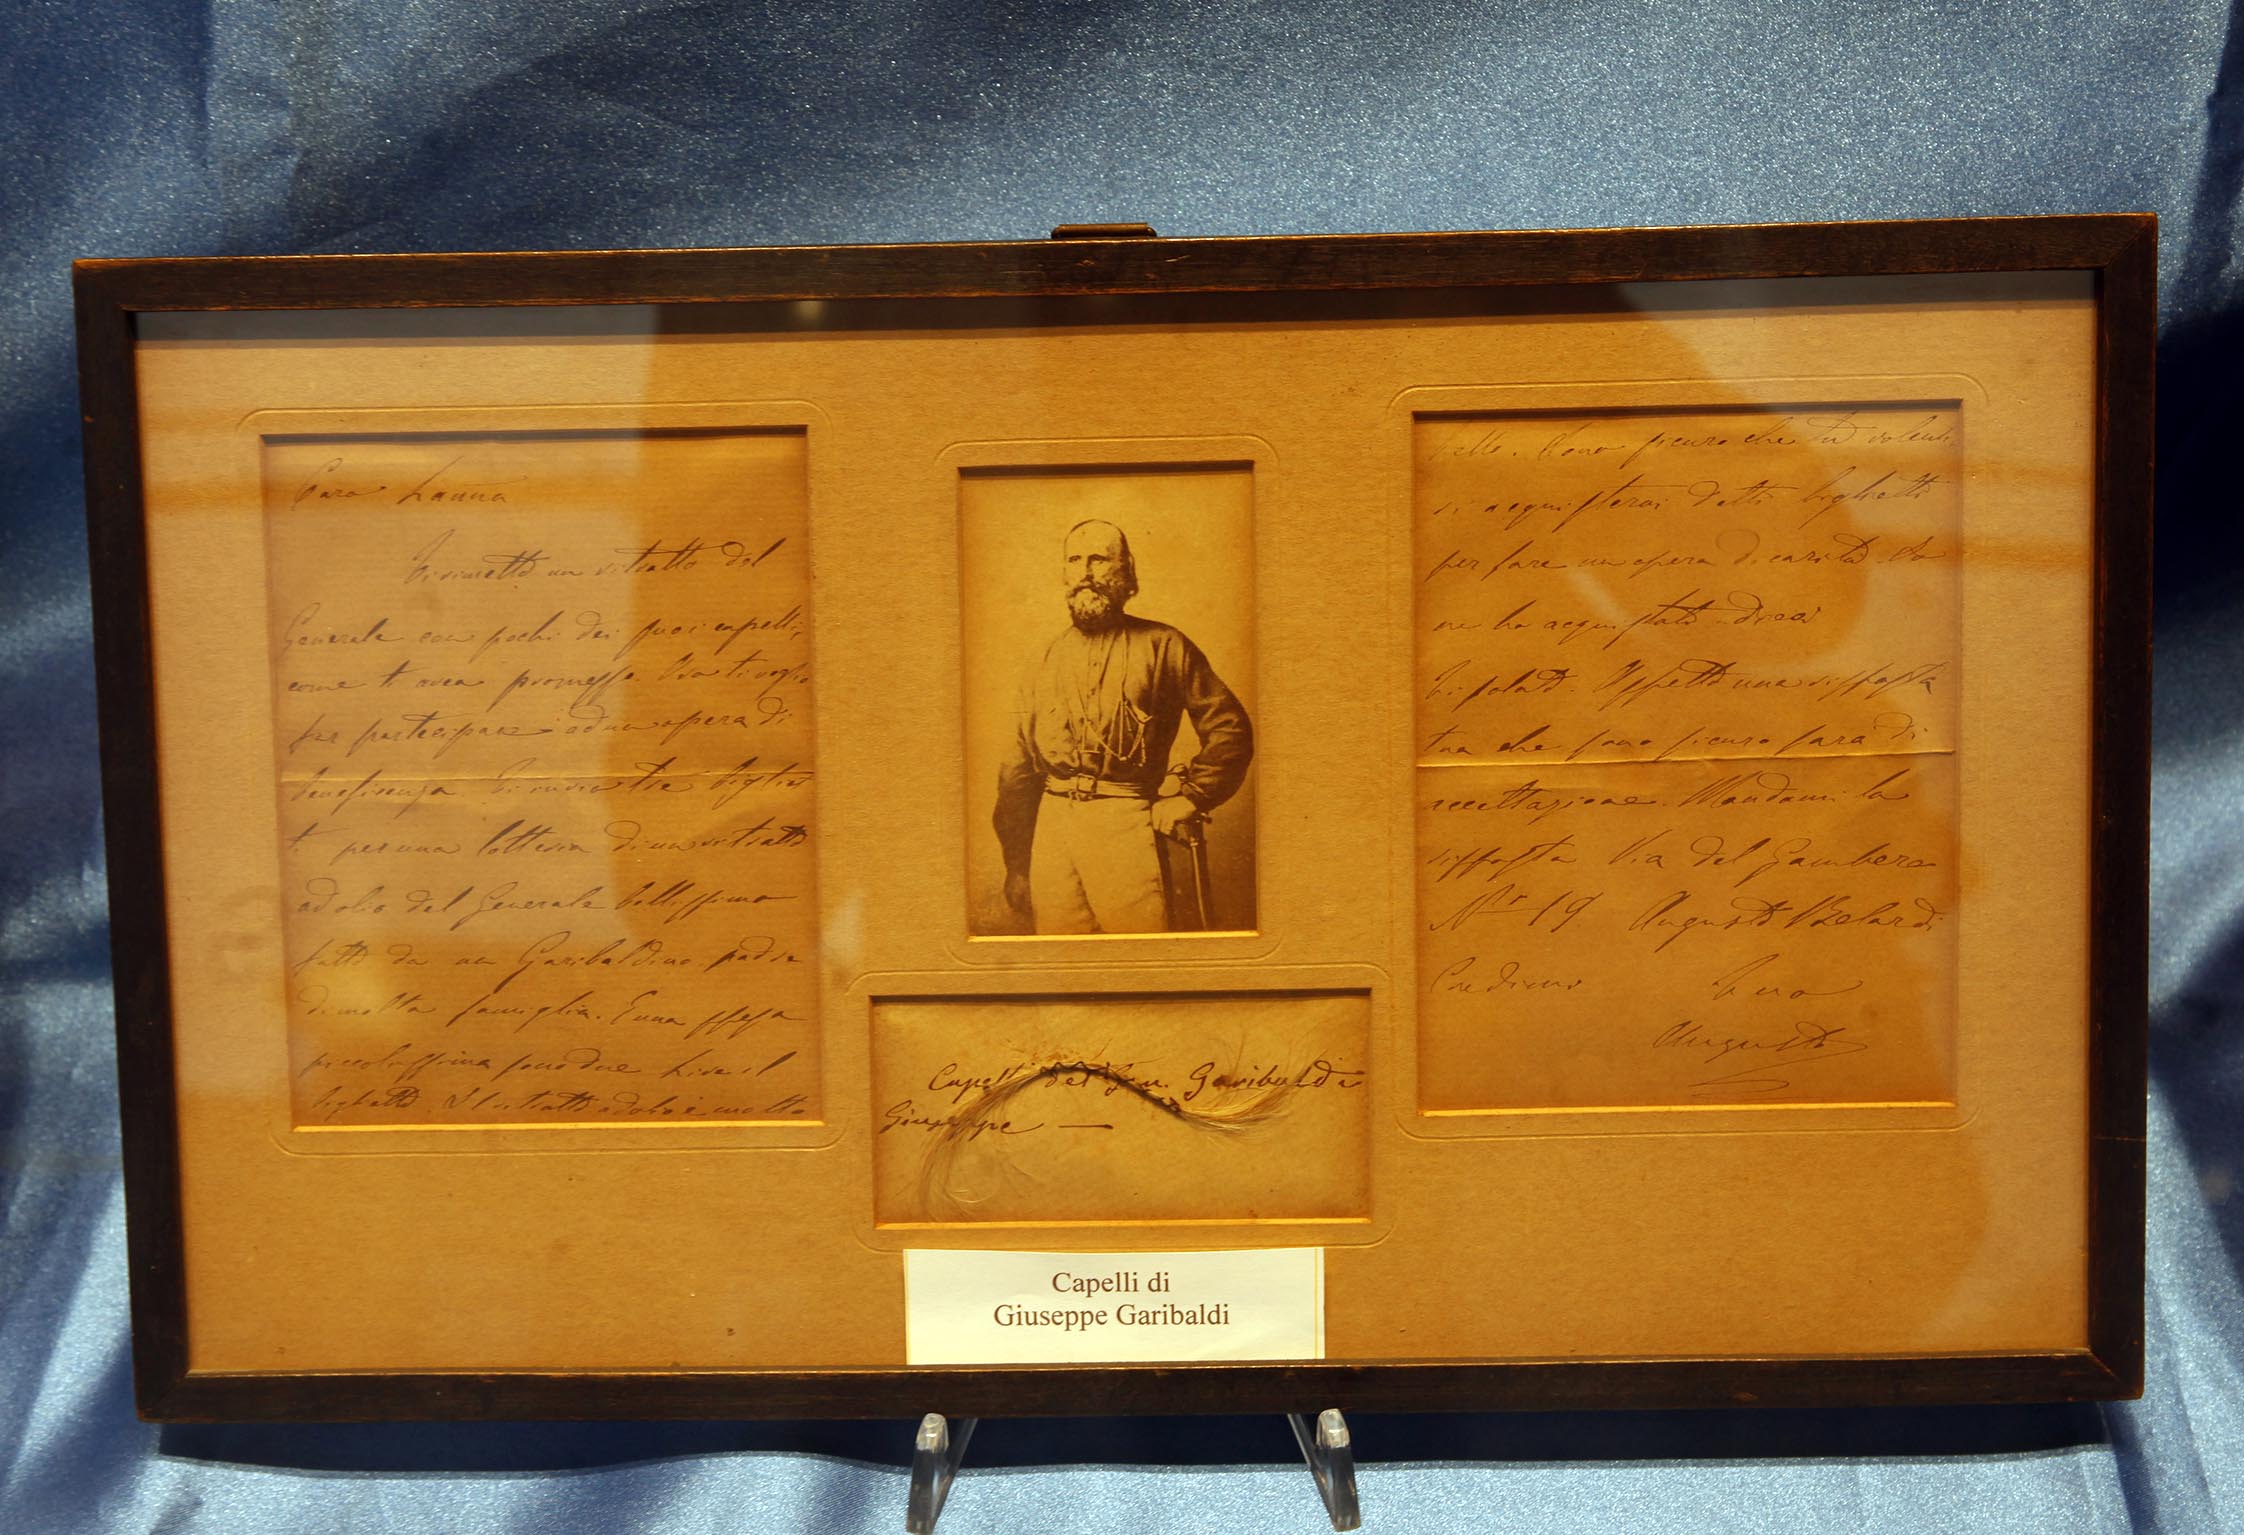 Cara
Ti rimetto un ritratto del
Generale con pochi dei suoi capelli,
come ti avea promesso. Ora ti voglio
far partecipare ad un opera di
beneficenza. Ti invio tre bigliet
ti per una lotteria di un ritratto
ad olio del Generale bellissimo
fatto da un Garibaldino padre
di molta famiglia. E una spesa
piccolissima sono due lire il
biglietto. Il ritratto ad olio è molto
bello. Sono sicuro che tu volenti
si acquisterai detti biglietti
per fare un opera di carità. Io
ne ho acquistati dieci
Ti saluto. Aspetto una risposta
tua che sono sicuro sarà di
accettazione. Mandami la
risposta Via del Gambero
Nr 19. Augusto
Credimi Tuo
Augusto
Capelli del Gen. Garibaldi
Giuseppe —
Capelli di
Giuseppe Garibaldi